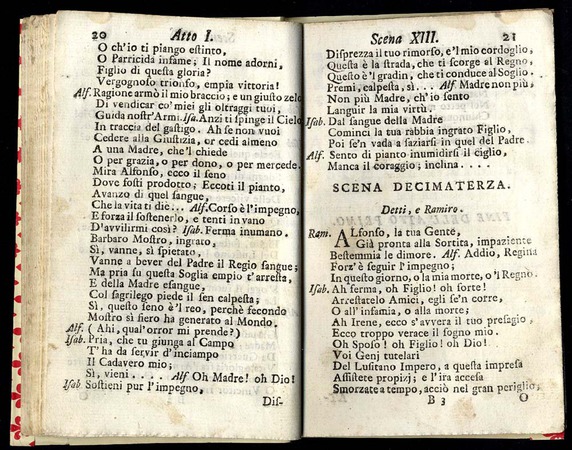 20 Atto I.
O ch'io ti piango estinto,
O Parricida infame; Il nome adorni,
Figlio di questa gloria?
Vergognoso trionfo, empia vittoria!
Alf. Ragione armò il mio braccio; e un giusto zelo
Di vendicar co' miei gli oltraggi tuoi,
Guida nostr'Armi. Isa. Anzi ti spinge il Cielo
In traccia del gastigo. Ah se non vuoi
Cedere alla Giustizia, or cedi almeno
A una Madre, che'l chiede
O per grazia, o per dono, o per mercede.
Mira Alfonso, ecco il seno
Dove fosti prodotto; Eccoti il pianto,
Avanzo di quel sangue,
Che la vita ti diè... Alf. Corso è l'impegno,
E forza il sostenerlo, e tenti in vano
D'avvilirmi così? Isab. Ferma inumano.
Barbaro Mostro, ingrato,
Sì, vanne, sì spietato,
Vanne a bever del Padre il Regio sangue;
Ma pria su questa Soglia empio t'arresta,
E della Madre esangue,
Col sagrilego piede il sen calpesta;
Sì, questo seno è'l reo, perchè fecondo
Mostro sì fiero ha generato al Mondo.
Alf. (Ahi, qual'orror mi prende?)
Isab. Pria, che tu giunga al Campo
T'ha da servir d'inciampo
Il Cadavero mio;
Sì, vieni ..... Alf Oh Madre! oh Dio!
Isab Sostieni pur l'impegno,
Dis-
Scena XIII. 21
Disprezza il tuo rimorso, e'l mio cordoglio,
Questa è la strada, che ti scorge al Regno,
Questo è'l gradin, che ti conduce al Soglio.
Premi, calpesta, sì.... Alf Madre non più,
Non più Madre, ch'io sento
Languir la mia virtù.
Isab. Dal sangue della Madre
Cominci la tua rabbia ingrato Figlio,
Poi se'n vada a saziarsi in quel del Padre.
Alf. Sento di pianto inumidirsi il ciglio,
Manca il coraggio; inclina....
SCENA DECIMATERZA.
Detti, e Ramiro.
Ram. ALfonso, la tua Gente,
Già pronta alla Sortita, impaziente
Bestemmia le dimore. Alf. Addio, Regina
Forz'è seguir l'impegno;
In questo giorno, o la mia morte, o'l Regno.
Isab. Ah ferma, oh Figlio! oh forte!
Arrestatelo Amici, egli se'n corre,
O all'infamia, o alla morte;
Ah Irene, ecco s'avvera il tuo presagio,
Ecco troppo verace il sogno mio.
Oh Sposo! oh Figlio! oh Dio!
Voi Genj tutelari
Del Lusitano Impero, a questa impresa
Assistere propizj; e l'ira accesa
Smorzate a tempo, acciò nel gran periglio,
B 3 O